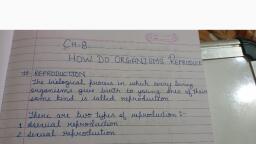 CH-8
HOW DO ORGANISMS REPRODUCE
# REPRODUCTION
The biological process in which every living
organisms give birth to young one of their
same kind is called reproduction
There are two types of reproduction :-
1 Asexual reproduction
2 Sexual reproduction